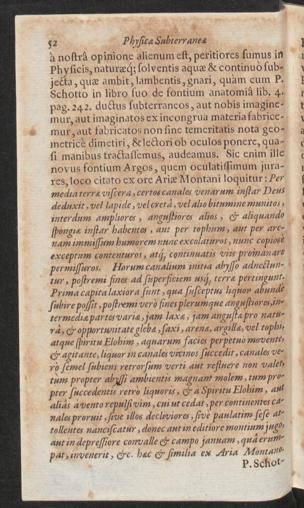 52 Physica Subterraneæ
à nostrâ opinione alienum est, peritiores sumus in
Physicis, naturæq; solventis aquæ & continuò sub-
jecta, quæ ambit, lambentis, gnari, quàm cum P.
Schotto in libro suo de fontium anatomiâ lib. 4.
pag. 242. ductus subterraneos, aut nobis imagine-
mur, aut imaginatos ex incongrua materia fabrice-
mur, aut fabricatos non sine temeritatis nota geo-
metricè dimetiri, & lectori ob oculos ponere, qua-
si manibus tractassemus, audeamus. Sic enim ille
novus fontium Argos, quem oculatissimum jura-
res, loco citato ex ore Ariæ Montani loquitur: Per
media terræ viscera, certos canales venarum instar Deus
deduxit, vel lapide, vel cretâ, vel alio bitumine munitos,
interdum ampliores, angustiores alios, & aliquando
spongiæ instar habentes, aut per tophum, aut per are-
nam immissum humorem nunc excolaturos, nunc copiosè
exceptum contenturos, atq; continuatis viis promanare
permissuros. Horum canalium initia abysso adnectun-
tur, postremi fines ad superficiem usq; terræ pertingunt.
Prima capita laxiora sunt, quæ suscepta liquor abundè
subire possit, postremi verò fines plerumque angustiores, in-
termediæ partes variæ, jam laxæ, jam angustæ pro natu-
râ, & opportunitate glebæ, saxi, arenæ, argillæ, vel tophi,
atque spiritu Elohim, aquarum facies perpetuò movente
& agitante, liquor in canales vicinos succedit, canales ve-
rò semel subiens retrorsum verti aut restuere non valet,
tum propter abyssi ambientis magnam molem, tum pro-
pter succedentis retrò liquoris, & à Spiritu Elohim, aut
aliàs à vento repulsi vim, cui ut cedat, per continentes ca-
nales proruit, sive illos decliviores, sive paulatim sese at-
tollentes nanciscatur, donec aut in editiore montium jugo,
aut in depressiore convalle & campo januam, quâ erum-
pat, invenerit, &c. hæc & similia ex Aria Montano
P. Schot-